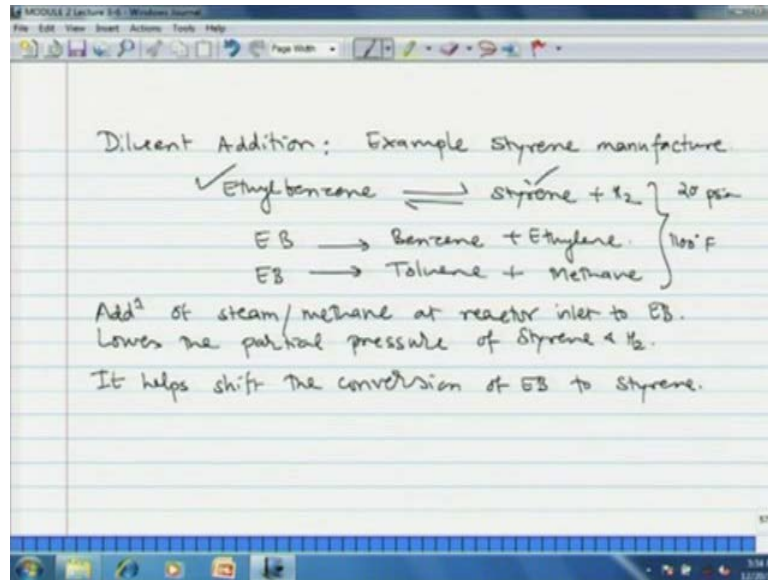 MODULE 2 Lecture 3-6 - Windows Journal
File Edit View Insert Actions Tools Help
Page Width
Diluent Addition: Example Styrene manufacture.
✓Ethylbenzene ⇌ Styrene + H2 } 20 psia
EB → Benzene + Ethylene. 1100°F
EB → Toluene + Methane
Addⁿ of steam/methane at reactor inlet to EB.
Lowers the partial pressure of Styrene & H2.
It helps shift the conversion of EB to Styrene.
57